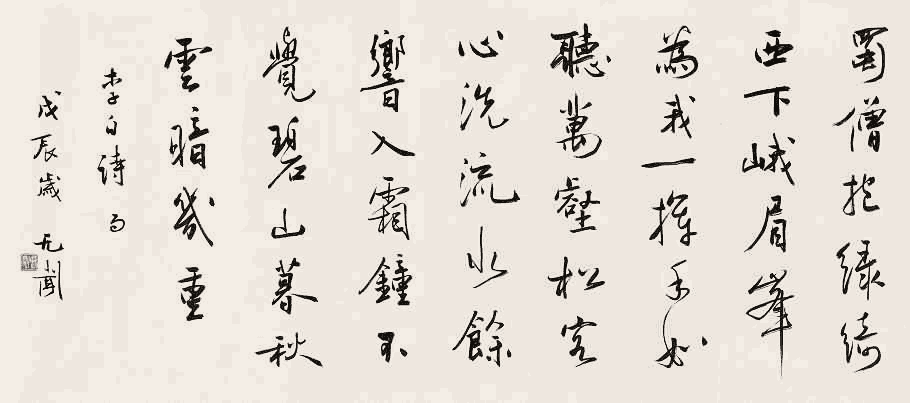 蜀僧抱綠綺
西下峨眉峯
為我一揮手如
聽萬壑松客
心洗流水餘
響入霜鐘不
覺碧山暮秋
雲暗幾重
李白詩句
戊辰歲